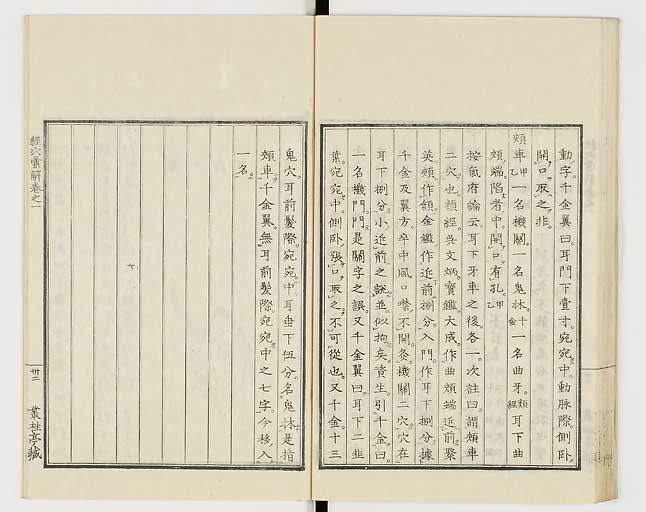 動字千金翼曰耳門下壹寸宛宛中動脉際側臥
開口取之非
頰車甲乙一名機關一名鬼牀千金一名曲牙類經耳下曲
頰端陷者中開口有孔甲乙
按氣府論云耳下牙車之後各一次註曰謂頰車
二穴也類經吳文炳寶鑑大成作曲頰端近前
頰作頷金鑑作近前捌分入門作耳下捌分據
千金及翼方卒中風口噤不開灸機關二穴穴在
耳下捌分小近前之說並似拘矣資生引千金曰
一名機門門是關字之誤又千金翼曰耳下二韭
葉宛宛中側臥張口取之不可從也又千金十三
鬼穴耳前髮際宛宛中耳垂下伍分名鬼牀是指
頰車千金翼無耳前髮際宛宛中之七字今移入
一名
經穴彙解卷之一
卅二
叢桂亭藏